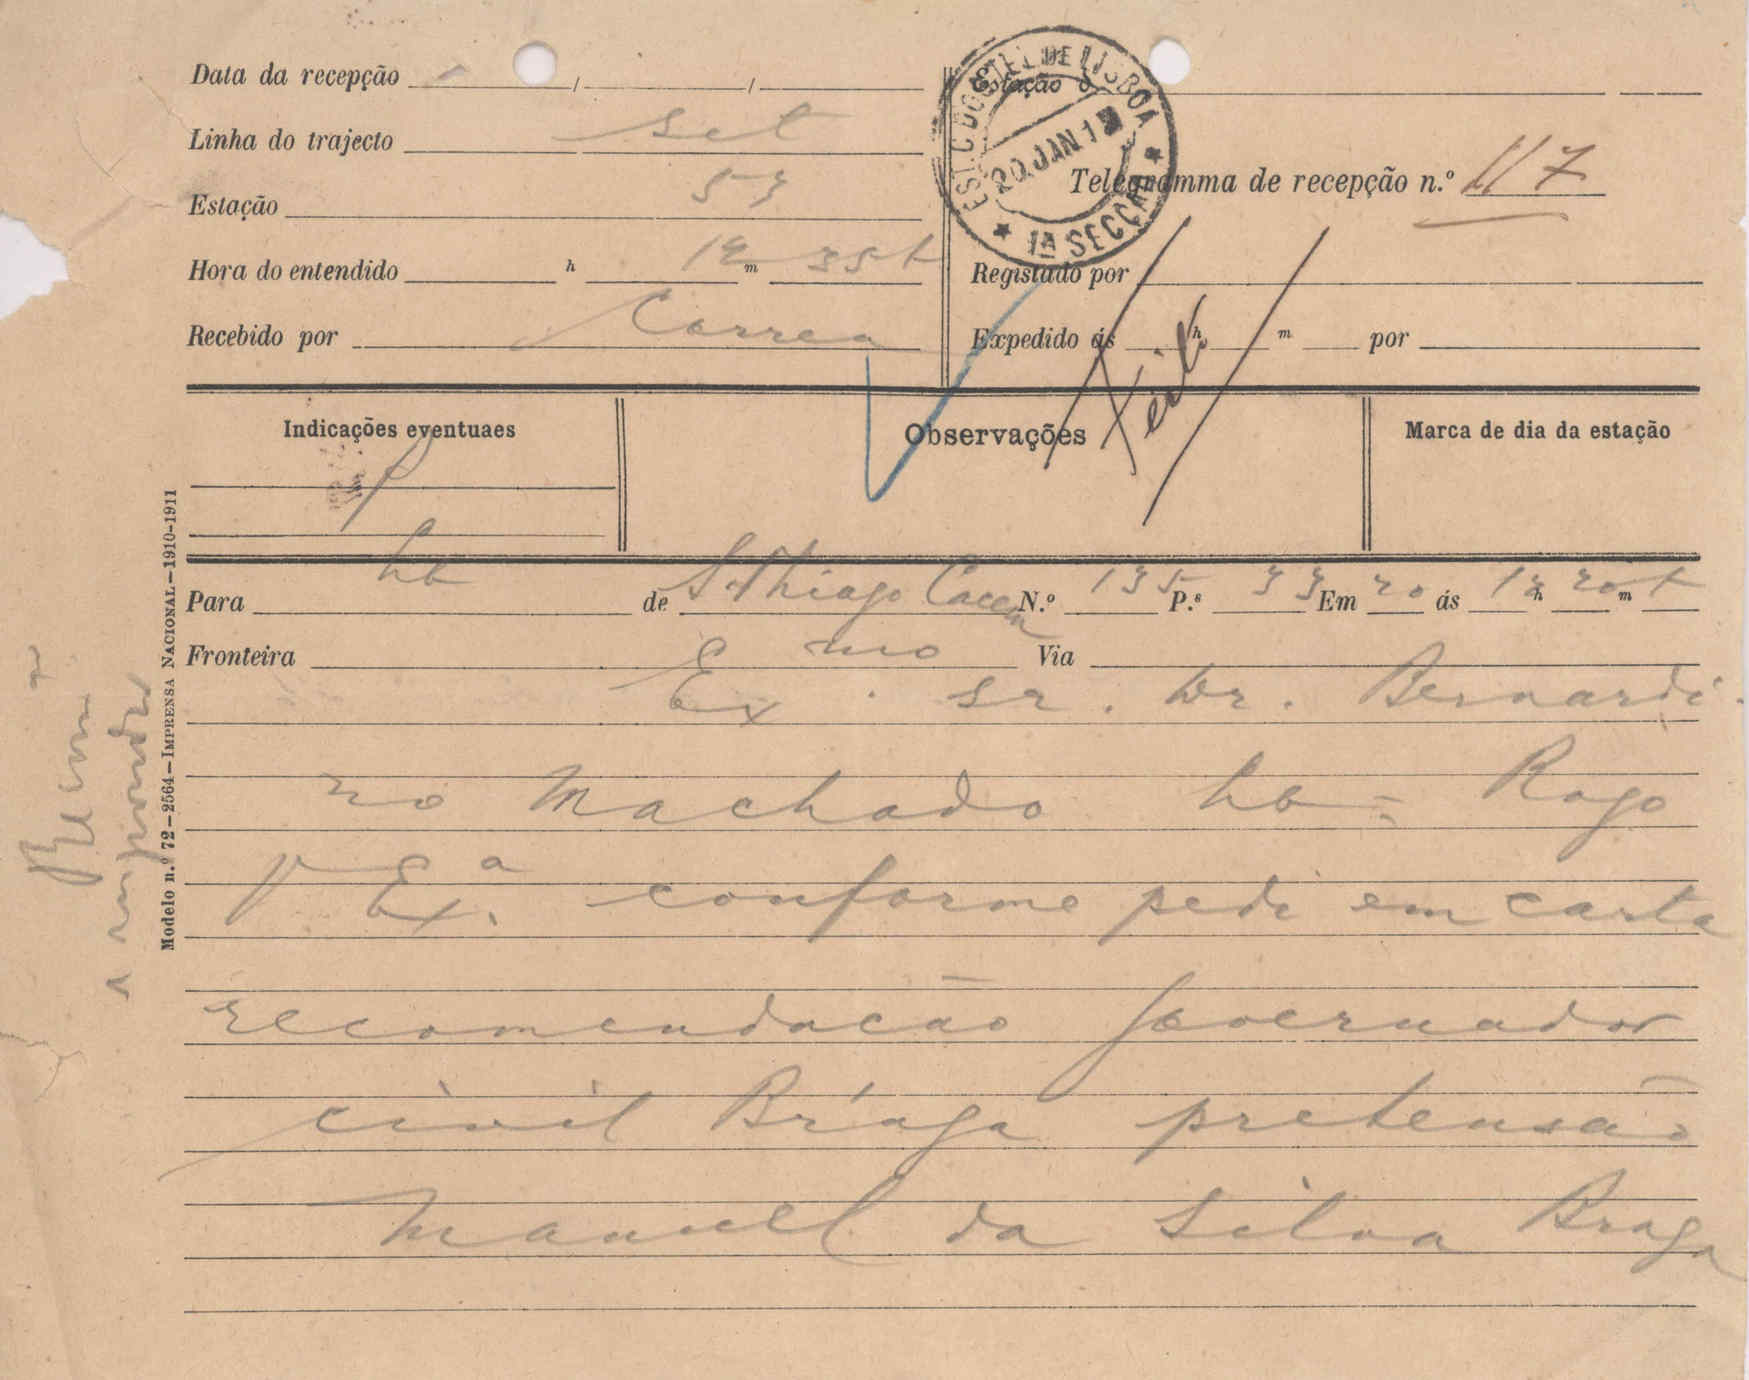 Data da recepção / /
Linha do trajecto set
Estação 53
Hora do entendido h 12 m 35 t
Recebido por Correa
EST. C. DOS TEL. DE LISBOA
20 JAN 1
1ª SECÇÃO
Estação d
Telegramma de recepção n.º 117
Registado por
Expedido ás h m por
Feito
Indicações eventuaes
Observações
Marca de dia da estação
Para Lb de S. Thiago Cacem N.º 135 P.s 33 Em 20 ás 12 h 20 m t
Fronteira Via
Exmo. sr. Dr. Bernardi-
no Machado Lb = Rogo
V Exª. conforme pedi em carta
recomendacão Governador
civil Braga pretensão
Manuel da Silva Braga
a responder
Modelo n.º 72—2564—IMPRENSA NACIONAL—1910-1911